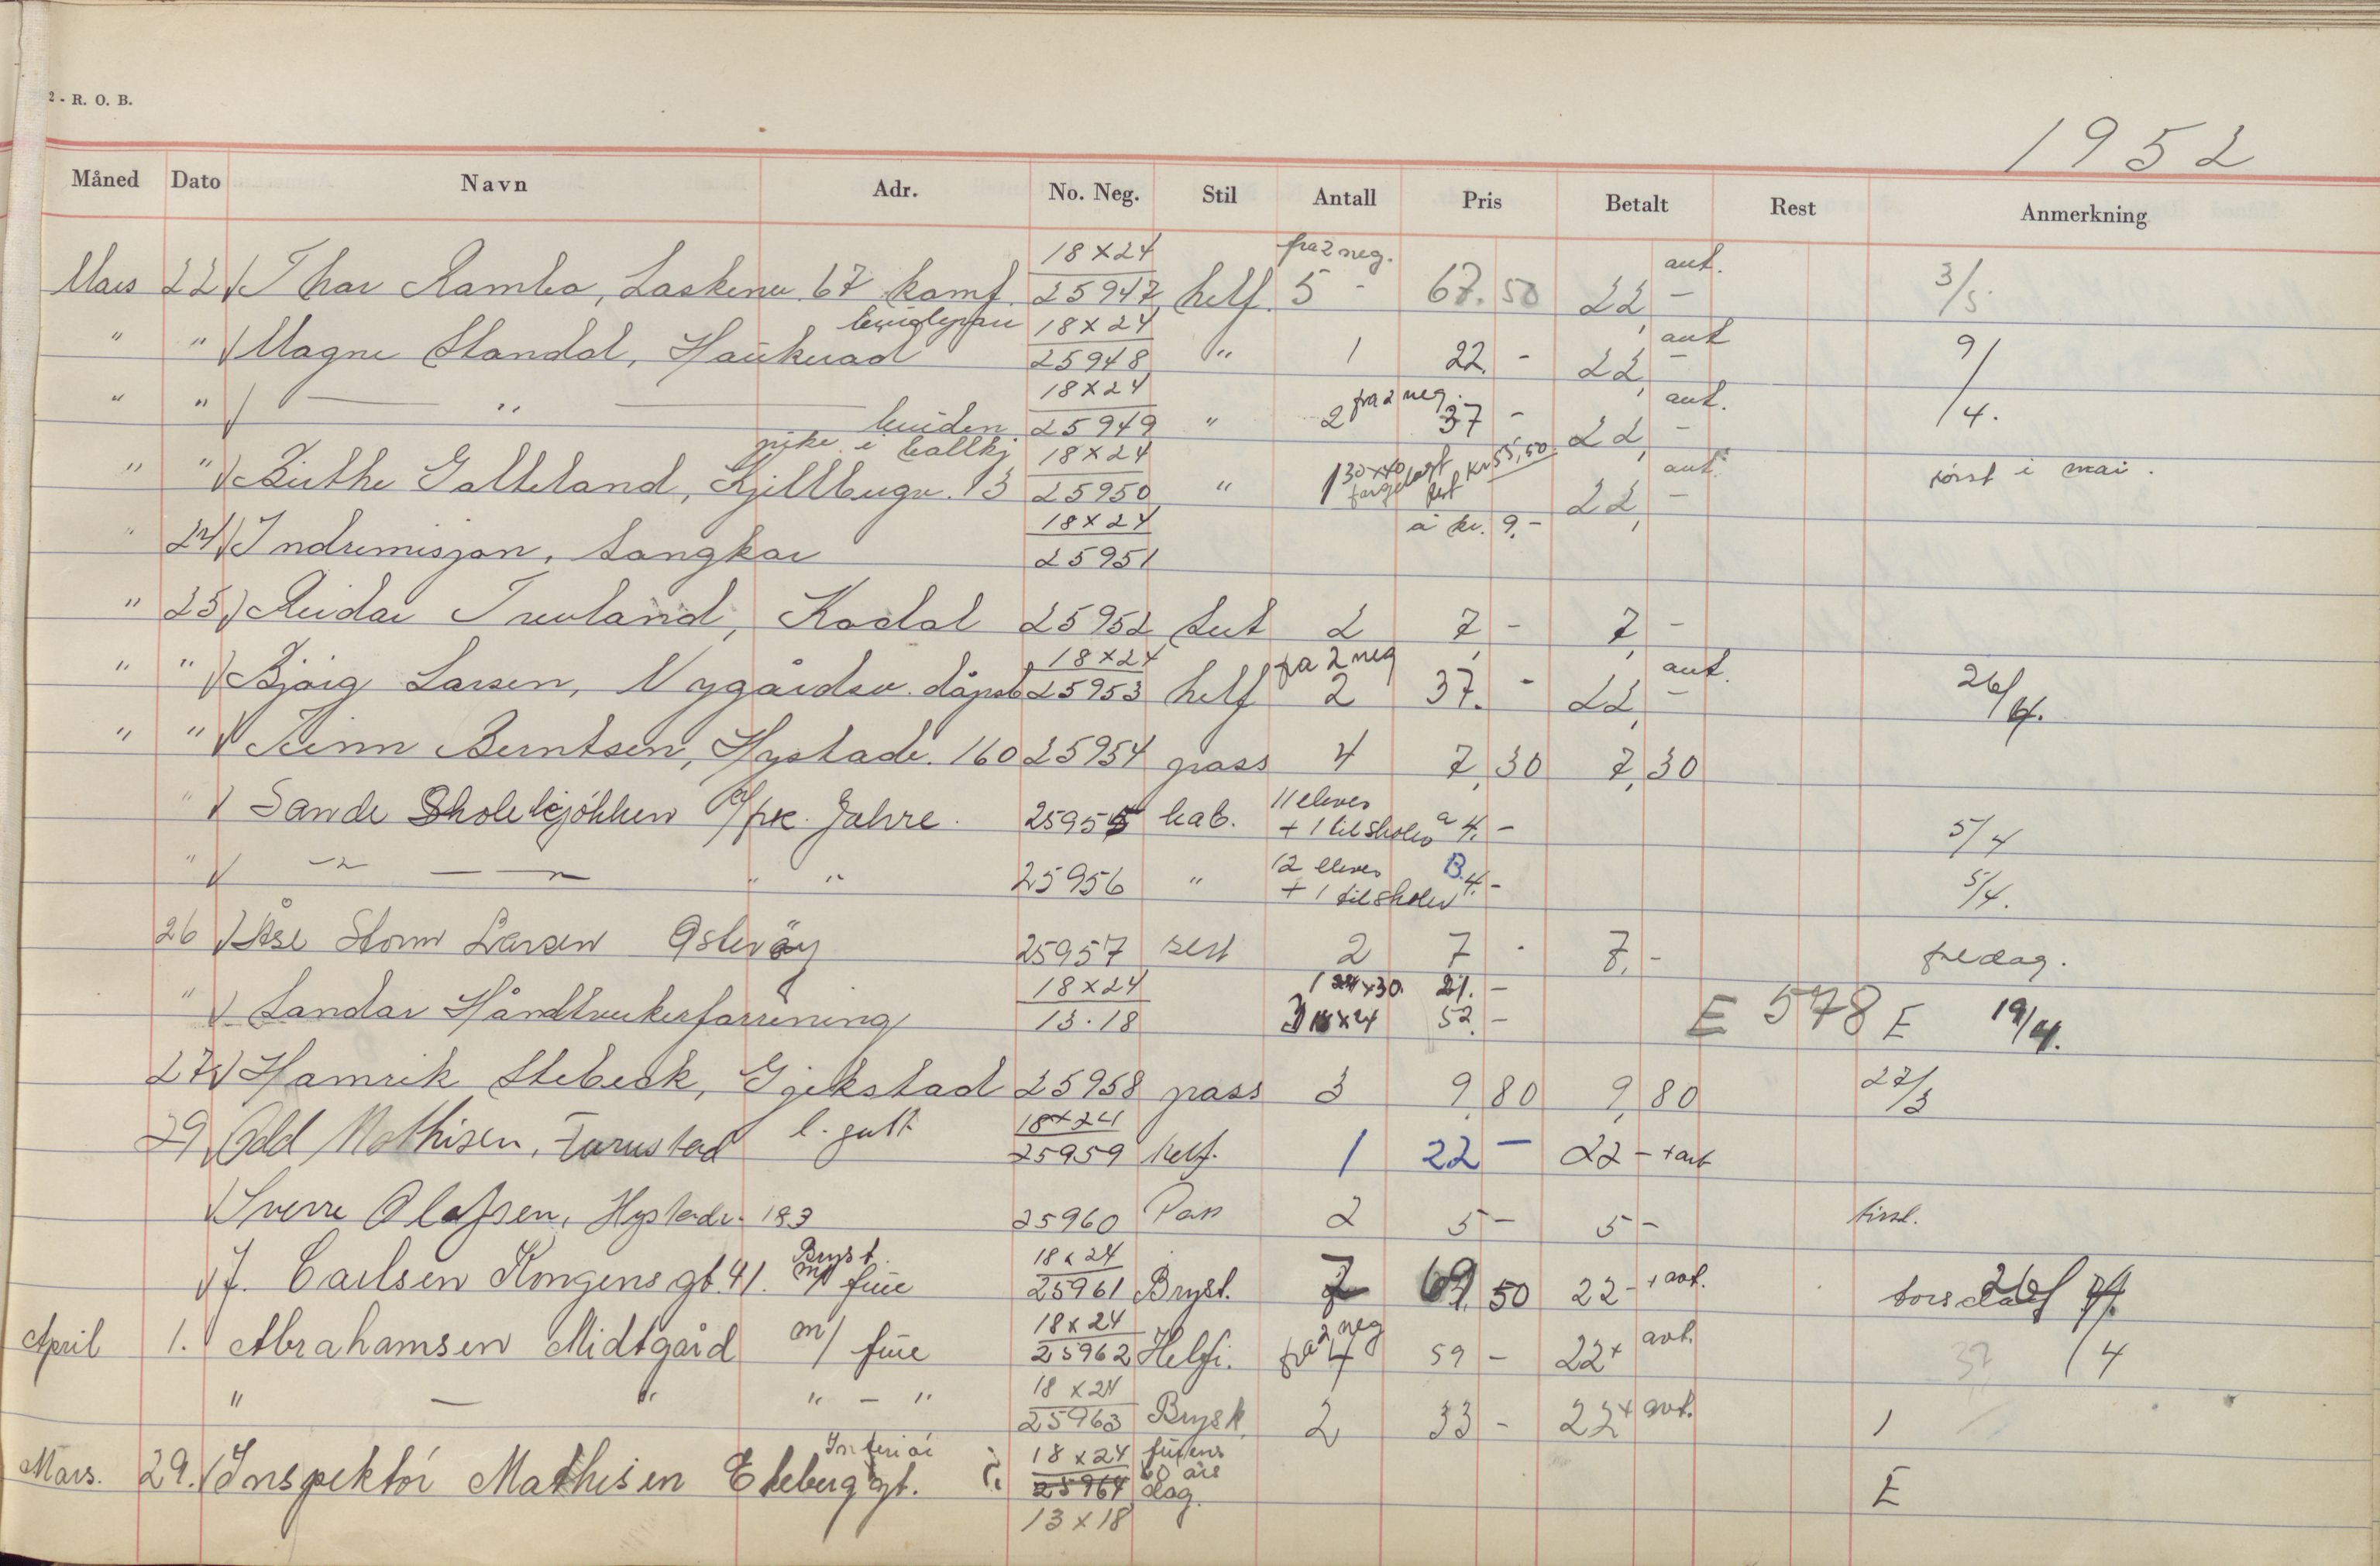 2 - R. O. B.
1952
Måned Dato Navn Adr. No. Neg. Stil Antall Pris Betalt Rest Anmerkning
Mars 22 √ Thor Rambo, Laskenv. 67 konf. 18x24 25947 helf. fra 2 neg. 5 - 67.50 22,- ant. 3/5
" " √ Magne Standal, Haukerød 18x24 25948 " 1 22.- 22,- ant 9/4.
" " √ — " — bruden 18x24 25949 " 2 fra 2 neg. 37 - 22,- ant.
" " √ Birthe Galteland, Kjellbergv. 13 pike i ballkj 18x24 25950 " 1 30x40 fargelagt Rest kr 55,50 22,- ant. først i mai.
" 24 √ Indremisjon, Sangkor 18x24 25951 à kr. 9,-
" 25 √ Reidar Trevland, Kodal 25952 sert 2 7,- 7,-
" " √ Bjørg Larsen, Nygårdsv. dåpsb 18x24 25953 helf fra 2 neg 2 37.- 22,- ant. 26/4.
" " √ Finn Berntsen, Hystadv. 160 25954 pass 4 7,30 7,30
" √ Sande Skolekjøkken frk. Jahre. 25955 kab. 11 elever + 1 til skolen a 4.- 5/4
" √ — " — " " 25956 " 12 elever + 1 til skolen B. 4.- 5/4.
26 √ Åse Storm Larsen Østerøy 25957 sert 2 7 - 7,- fredag.
" √ Sandar Håndverkerforening 18x24 13.18 1 24x30. 21.- 3 18x24 52.- E 578 E 19/4.
27 √ Hamrik Stebekk, Gjekstad 25958 pass 3 9,80 9,80 27/3
29 √ Odd Mathisen, Furustad b. gutt 18x24 25959 helf. 1 22 - 22 - + ant
√ Sverre Olafsen, Hystadv. 183 25960 Pass 2 5 - 5 - tirsd.
√ J. Carlsen Kongensgt. 41. Bryst. m/ frue 18x24 25961 Bryst. 7 69,50 22 - + avt. torsdag 26/4.
April 1. Abrahamsen Midtgård m/ frue 18x24 25962 Helfi. fra 2 neg 4 59 - 22 + avt. /4
" — " " — " 18x24 25963 Bryst 2 33 - 22 + avt.
Mars. 29. √ Inspektør Mathisen Ekeberggt. Interiør 18x24 25964 13x18 fruens 60 års dag. E